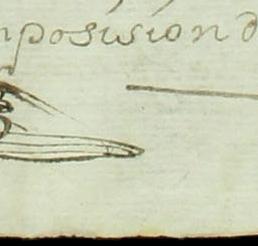 mposision d